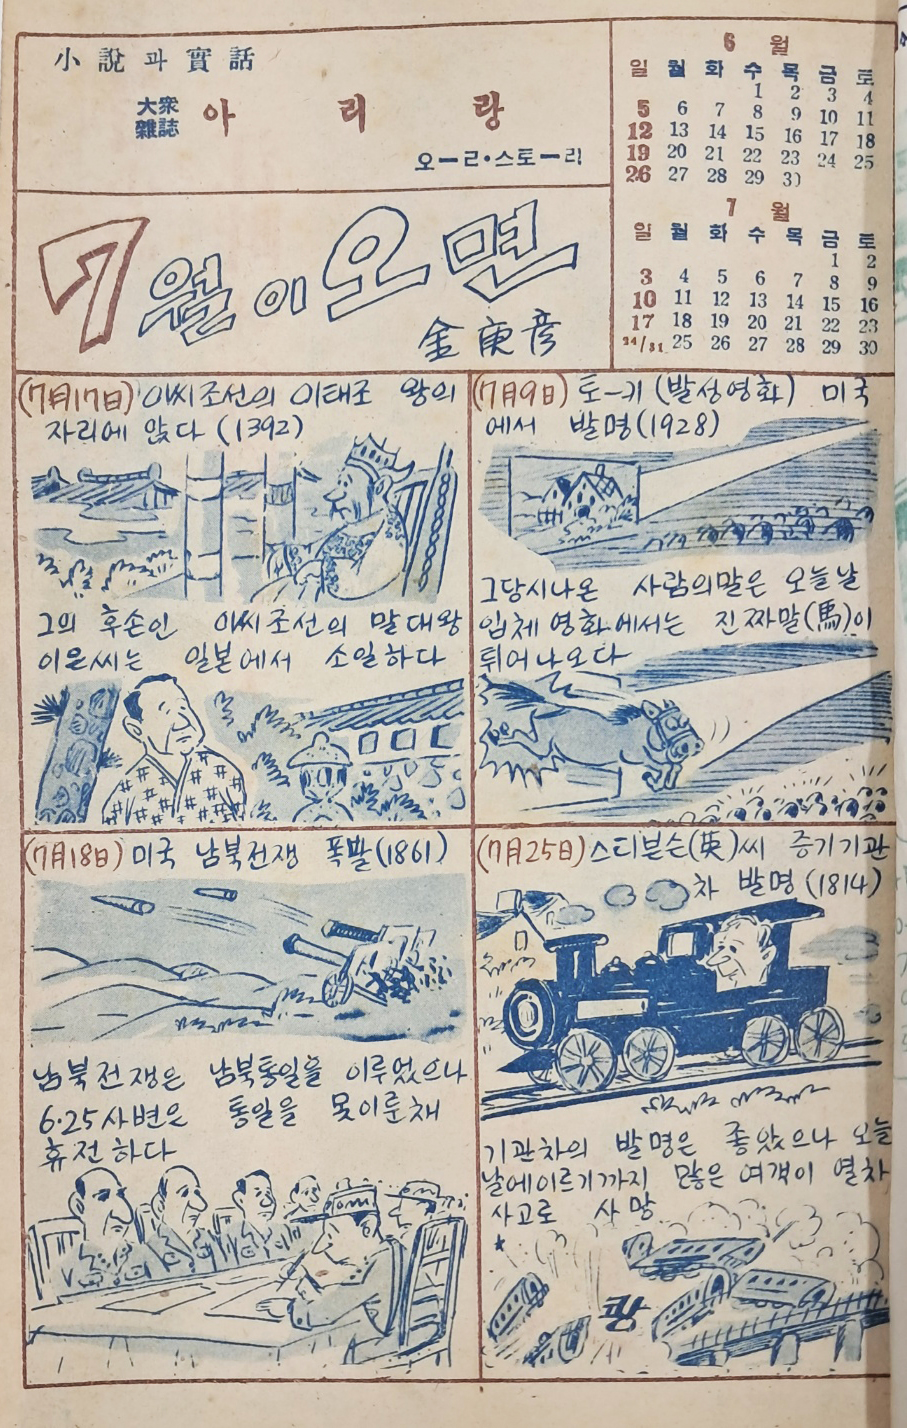 小說과 實話
大衆
雜誌
아리랑
오ー리·스토ー리
6월
일 월 화 수 목 금 토
1 2 3 4
5 6 7 8 9 10 11
12 13 14 15 16 17 18
19 20 21 22 23 24 25
26 27 28 29 30
7월
일 월 화 수 목 금 토
1 2
3 4 5 6 7 8 9
10 11 12 13 14 15 16
17 18 19 20 21 22 23
24/31 25 26 27 28 29 30
7월이 오면
金庚彦
(7月17日) 이씨조선의 이태조 왕의
자리에 앉다 (1392)
그의 후손인 이씨조선의 말대왕
이은씨는 일본에서 소일하다
(7月9日) 토ー키 (발성영화) 미국
에서 발명(1928)
그당시나온 사람의말은 오늘날
입체영화에서는 진짜말(馬)이
튀어나오다
(7月18日) 미국 남북전쟁 폭발(1861)
남북전쟁은 남북통일을 이루었으나
6·25사변은 통일을 못이룬채
휴전하다
(7月25日) 스티븐손(英)씨 증기기관
차 발명 (1814)
기관차의 발명은 좋았으나 오늘
날에이르기까지 많은 여객이 열차
사고로 사망
쾅